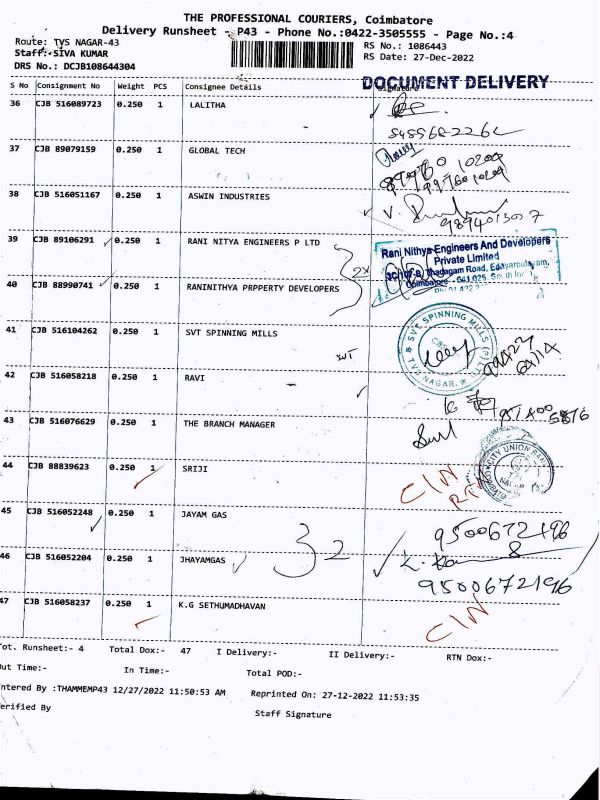 THE PROFESSIONAL COURIERS, Coimbatore
Delivery Runsheet - P43 - Phone No.:0422-3505555 - Page No.:4
Route: TVS NAGAR-43 RS No.: 1086443
Staff:-SIVA KUMAR RS Date: 27-Dec-2022
DRS No.: DCJB108644304
DOCUMENT DELIVERY
S No Consignment No Weight PCS Consignee Details Signature
36 CJB 516089723 0.250 1 LALITHA
37 CJB 89079159 0.250 1 GLOBAL TECH
89760 10204
99760 10204
38 CJB 516051167 0.250 1 ASWIN INDUSTRIES
9894013007
39 CJB 89106291 0.250 1 RANI NITYA ENGINEERS P LTD
Rani Nithya Engineers And Developers
Private Limited
Thadagam Road, Edayarpalayam,
Coimbatore - 641 025.
40 CJB 88990741 0.250 1 RANINITHYA PRPPERTY DEVELOPERS
41 CJB 516104262 0.250 1 SVT SPINNING MILLS
SVT
SVT SPINNING MILLS (P) LTD
TVS NAGAR.
42 CJB 516058218 0.250 1 RAVI
43 CJB 516076629 0.250 1 THE BRANCH MANAGER
CITY UNION BANK
44 CJB 88839623 0.250 1 SRIJI
C/N
RTN
45 CJB 516052248 0.250 1 JAYAM GAS
32
9500672196
46 CJB 516052204 0.250 1 JHAYAMGAS
9500672196
47 CJB 516058237 0.250 1 K.G SETHUMADHAVAN
C/N
Tot. Runsheet:- 4 Total Dox:- 47 I Delivery:- II Delivery:- RTN Dox:-
Out Time:- In Time:- Total POD:-
Entered By :THAMMEMP43 12/27/2022 11:50:53 AM Reprinted On: 27-12-2022 11:53:35
Verified By Staff Signature